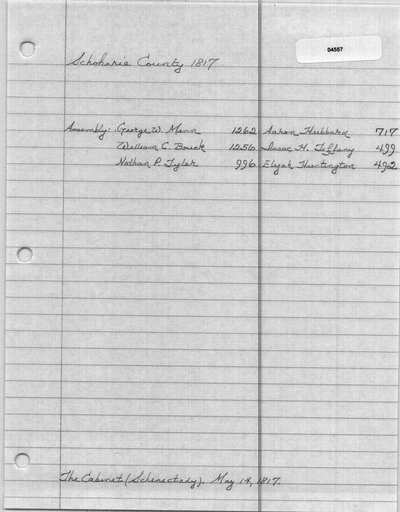 04557
Schoharie County 1817
Assembly: George W. Mann 1262 Aaron Hubbard 717
William C. Bouck 1256 Isaac H. Tiffany 499
Nathan P. Tyler 996 Elijah Huntington 492
The Cabinet (Schenectady). May 14, 1817.